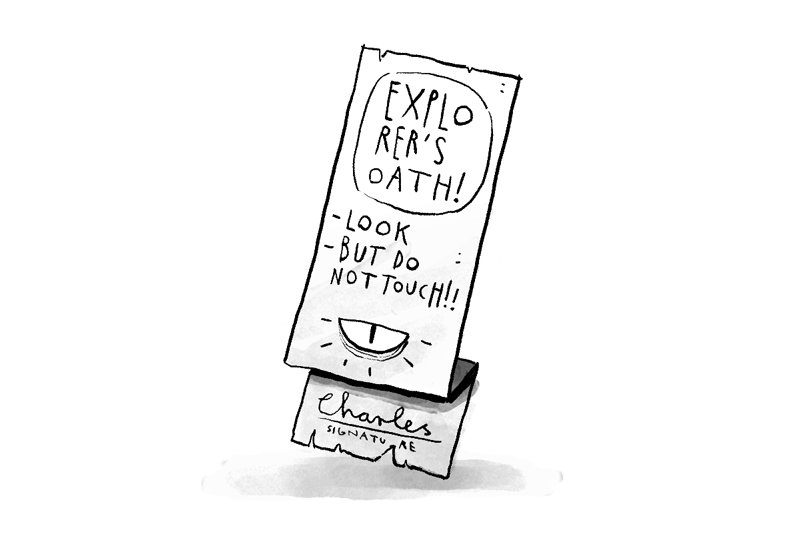 EXPLO
RER'S
OATH!
-LOOK
-BUT DO
NOT TOUCH!!
Charles
SIGNATURE